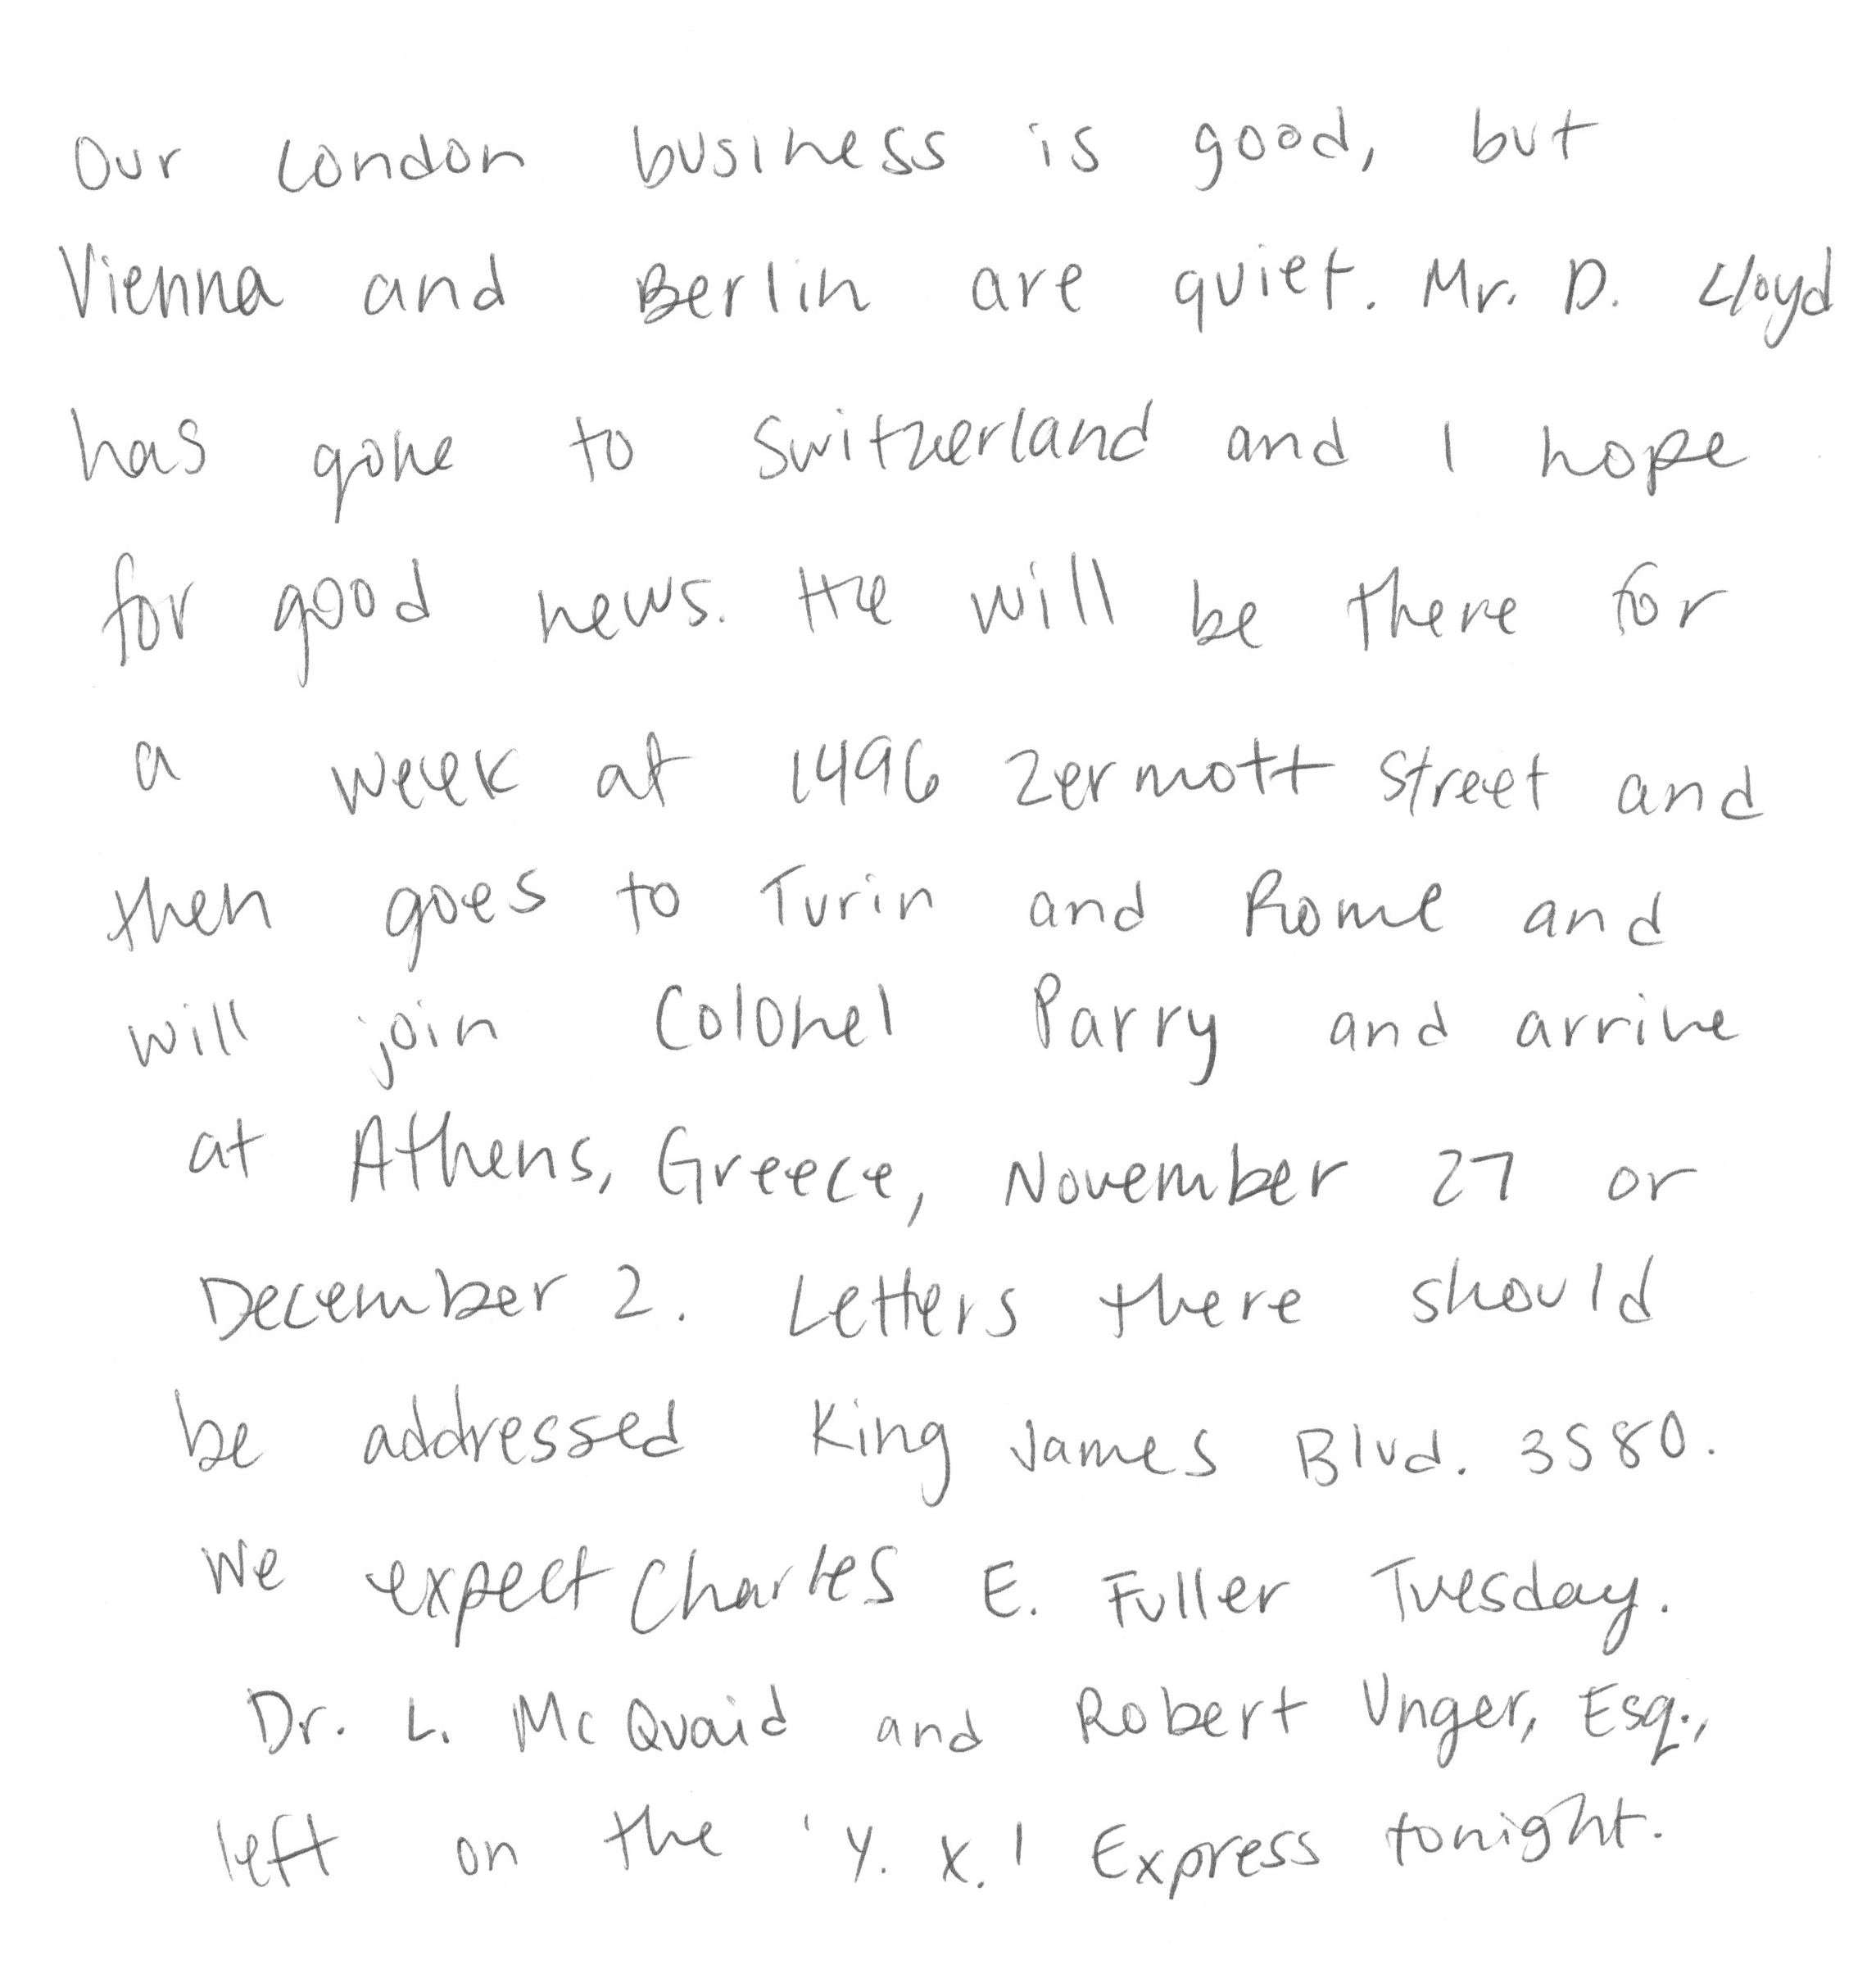 Our London business is good, but
Vienna and Berlin are quiet. Mr. D. Lloyd
has gone to Switzerland and I hope
for good news. He will be there for
a week at 1496 Zermott Street and
then goes to Turin and Rome and
will join Colonel Parry and arrive
at Athens, Greece, November 27 or
December 2. Letters there should
be addressed King James Blvd. 3580.
We expect Charles E. Fuller Tuesday.
Dr. L. McQuaid and Robert Unger, Esq.,
left on the 'Y. X.' Express tonight.